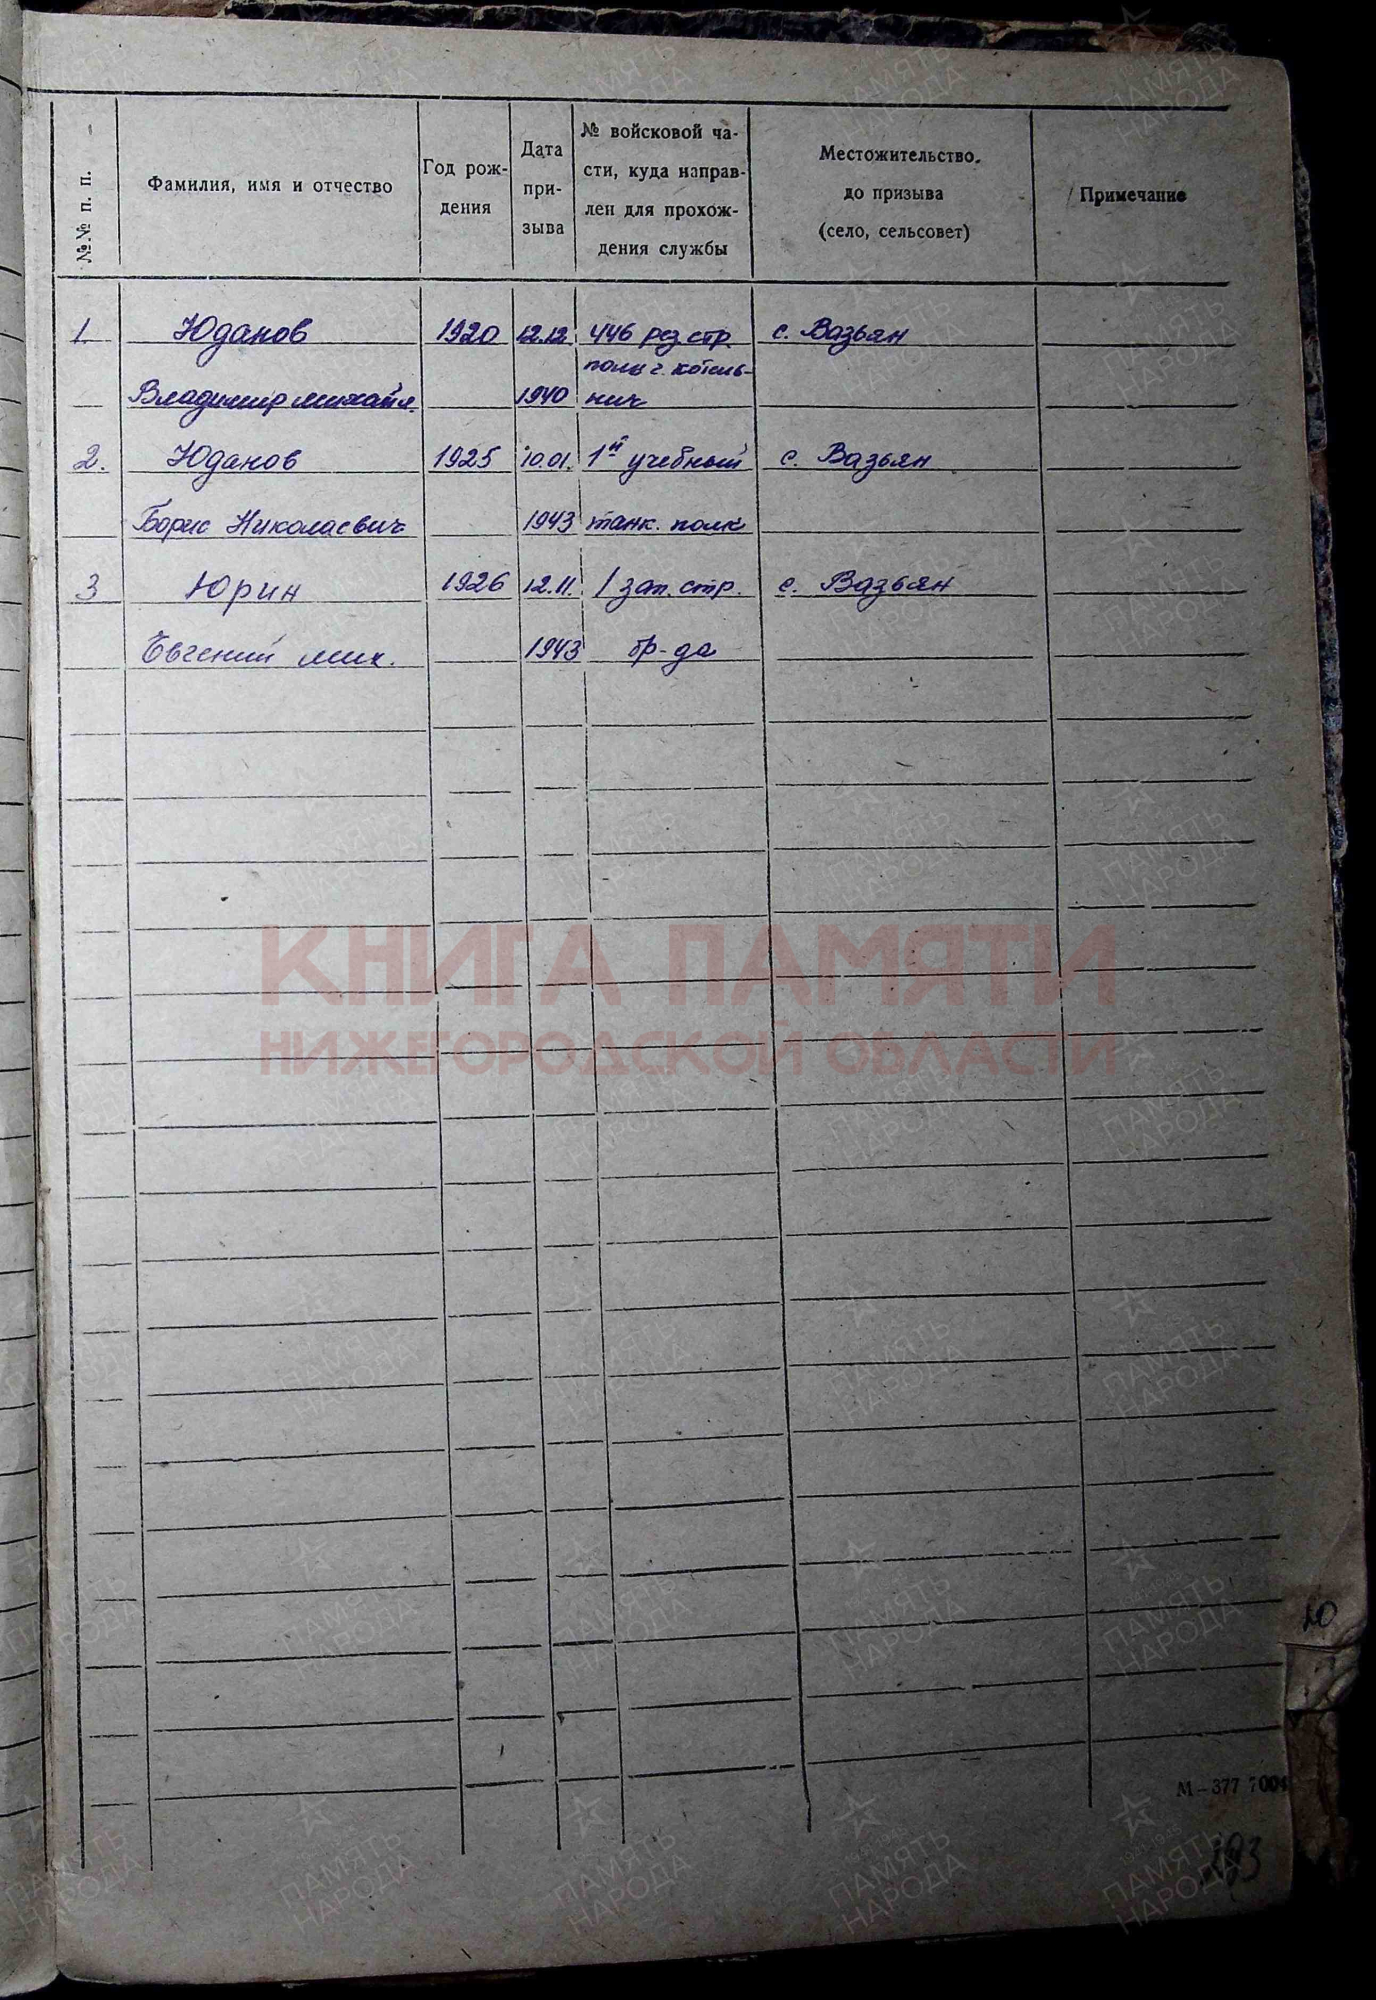 №№ п. п.
Фамилия, имя и отчество
Год рож-
дения
Дата
при-
зыва
№ войсковой ча-
сти, куда направ-
лен для прохож-
дения службы
Местожительство
до призыва
(село, сельсовет)
Примечание
1. Юданов 1920 12.12. 446 рез стр. с. Вазьян
полк г. Котель-
Владимир Михайл. 1940 нич
2. Юданов 1925 10.01. 1й учебный с. Вазьян
Борис Николаевич 1943 танк. полк
3 Юрин 1926 12.11. 1 зап. стр. с. Вазьян
Евгений Мих. 1943 бр-да
КНИГА ПАМЯТИ
НИЖЕГОРОДСКОЙ ОБЛАСТИ
ПАМЯТЬ
НАРОДА
Ю
М-377 7004